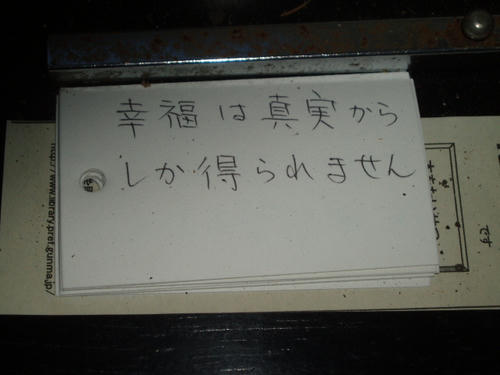 幸福は真実から
しか得られません
http://www.library.pref.gunma.jp/
です